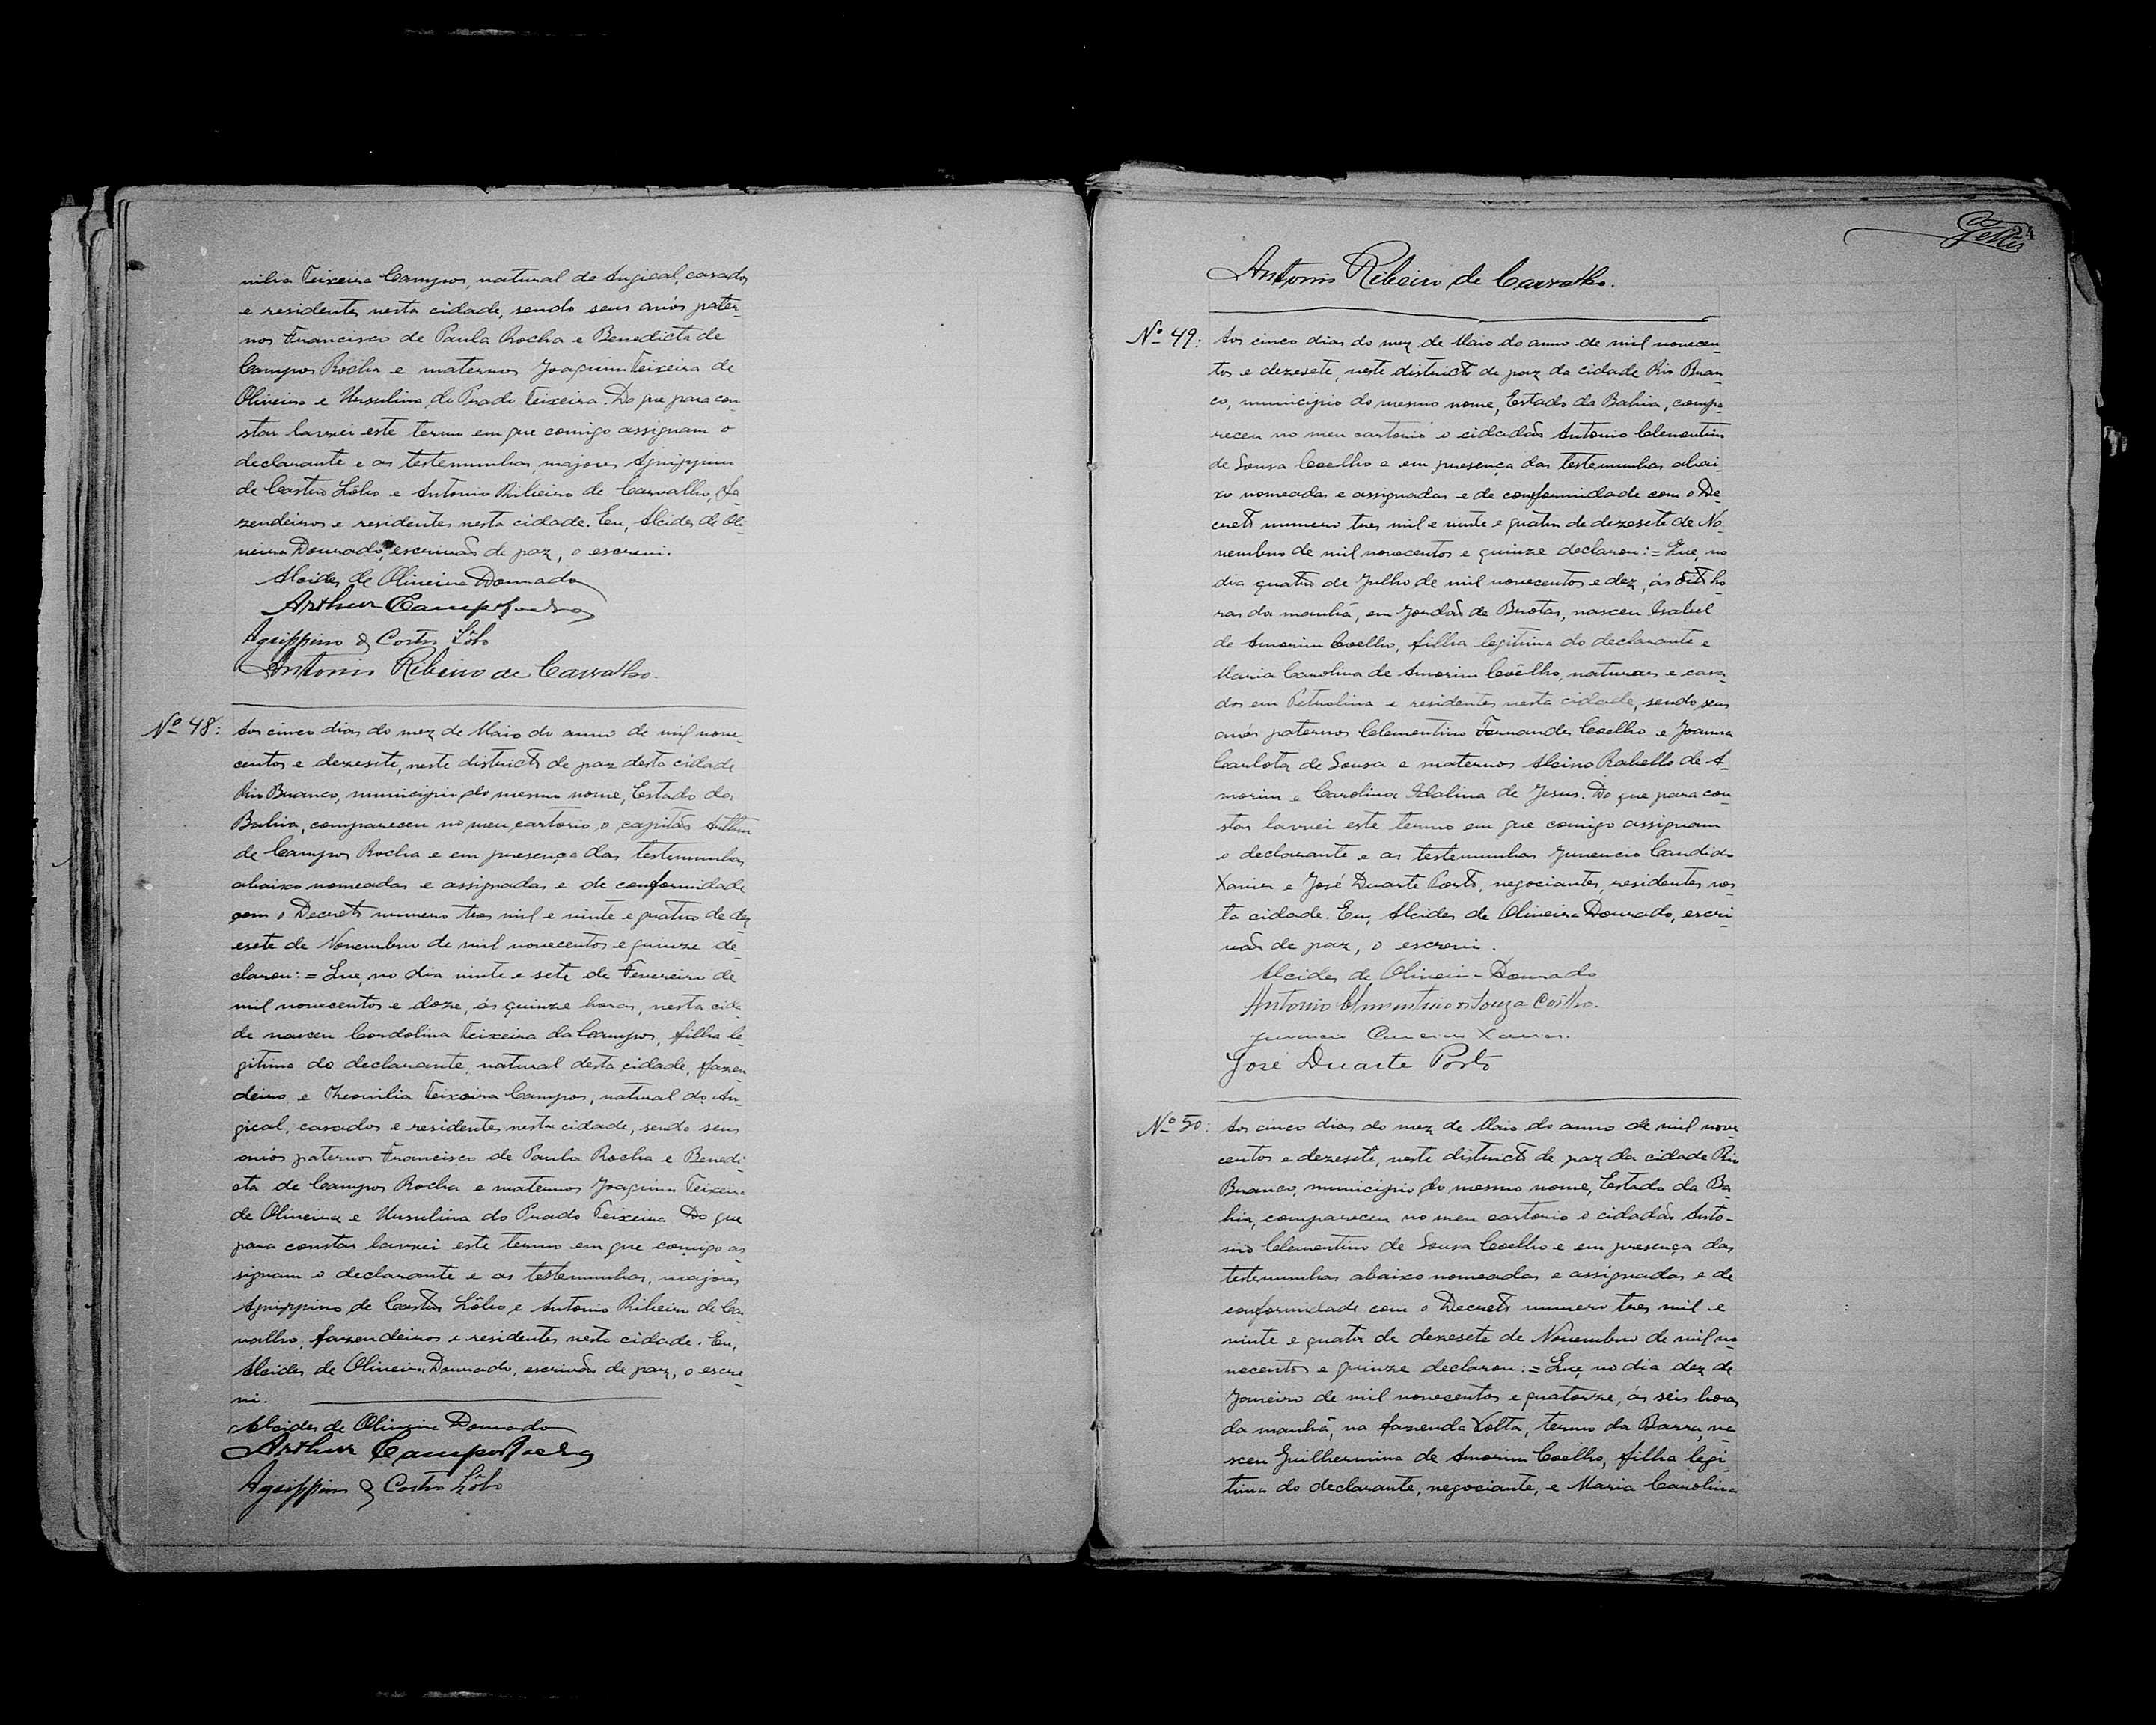 milia Teixeira Campos, natural de Angical, casados
e residentes nesta cidade, sendo seus avós pater-
nos Francisco de Paula Rocha e Benedicta de
Campos Rocha e maternos Joaquim Teixeira de
Oliveira e Ursulina do Prado Teixeira. Do que para con-
star lavrei este termo em que comigo assignam o
declarante e as testemunhas, majores Agrippino
de Castro Lôbo e Antonio Ribeiro de Carvalho, fa-
zendeiros e residentes nesta cidade. Eu, Alcides de Oli-
veira Dourado, escrivão de paz, o escrevi.
Alcides de Oliveira Dourado
Arthur Campos Rocha
Agrippino de Castro Lôbo
Antonio Ribeiro de Carvalho.
Nº 48:
Aos cinco dias do mez de Maio do anno de mil nove-
centos e dezesete, neste districto de paz desta cidade
Rio Branco, municipio do mesmo nome, Estado da
Bahia, compareceu no meu cartorio o capitão Arthur
de Campos Rocha e em presença das testemunhas
abaixo nomeadas e assignadas e de conformidade
com o Decreto numero tres mil e vinte e quatro de dez-
esete de Novembro de mil novecentos e quinze de-
clarou: = Que, no dia vinte e sete de Fevereiro de
mil novecentos e doze, ás quinze horas, nesta cida-
de nasceu Cordolina Teixeira da Campos, filha le-
gitima do declarante, natural desta cidade, fazen-
deiro, e Themilia Teixeira Campos, natural do An-
gical, casados e residentes nesta cidade, sendo seus
avós paternos Francisco de Paula Rocha e Benedi-
cta de Campos Rocha e maternos Joaquim Teixeira
de Oliveira e Ursulina do Prado Teixeira Do que
para constar lavrei este termo em que comigo as-
signam o declarante e as testemunhas, majores
Agrippino de Castro Lôbo e Antonio Ribeiro de Car-
valho, fazendeiros e residentes nesta cidade. Eu,
Alcides de Oliveira Dourado, escrivão de paz, o escre-
vi.
Alcides de Oliveira Dourado
Arthur Campos Rocha
Agrippino de Castro Lôbo
24
Antonio Ribeiro de Carvalho.
Nº 49:
Aos cinco dias do mez de Maio do anno de mil novecen-
tos e dezesete, neste districto de paz da cidade Rio Bran-
co, municipio do mesmo nome, Estado da Bahia, compa-
receu no meu cartorio o cidadão Antonio Clementino
de Sousa Coelho e em presença das testemunhas abai-
xo nomeadas e assignadas e de conformidade com o De-
creto numero tres mil e vinte e quatro de dezesete de No-
vembro de mil novecentos e quinze declarou: = Que, no
dia quatro de Julho de mil novecentos e dez, ás oito ho-
ras da manhã, em Jordão de Brotas, nasceu Isabel
de Amorim Coelho, filha legitima do declarante e
Maria Carolina de Amorim Coêlho, naturaes e casa-
dos em Petrolina e residentes nesta cidade, sendo seus
avós paternos Clementino Fernandes Coelho e Joanna
Carlota de Sousa e maternos Alcino Rabello de A-
morim e Carolina Idalina de Jesus. Do que para con-
star lavrei este termo em que comigo assignam
o declarante e as testemunhas Juvencio Candido
Xavier e José Duarte Porto, negociantes, residentes nes-
ta cidade. Eu, Alcides de Oliveira Dourado, escri-
vão de paz, o escrevi.
Alcides de Oliveira Dourado
Antonio Clementino de Souza Coêlho.
Juvencio Xavier.
José Duarte Porto
Nº 50:
Aos cinco dias do mez de Maio do anno de mil nove-
centos e dezesete, neste districto de paz da cidade Rio
Branco, municipio do mesmo nome, Estado da Ba-
hia, compareceu no meu cartorio o cidadão Anto-
nio Clementino de Sousa Coelho e em presença das
testemunhas abaixo nomeadas e assignadas e de
conformidade com o Decreto numero tres mil e
vinte e quatro de dezesete de Novembro de mil no-
vecentos e quinze declarou: = Que, no dia dez de
Janeiro de mil novecentos e quatorze, ás seis horas
da manhã, na fazenda Volta, termo da Barra, na-
sceu Guilhermina de Amorim Coelho, filha legi-
tima do declarante, negociante, e Maria Carolina